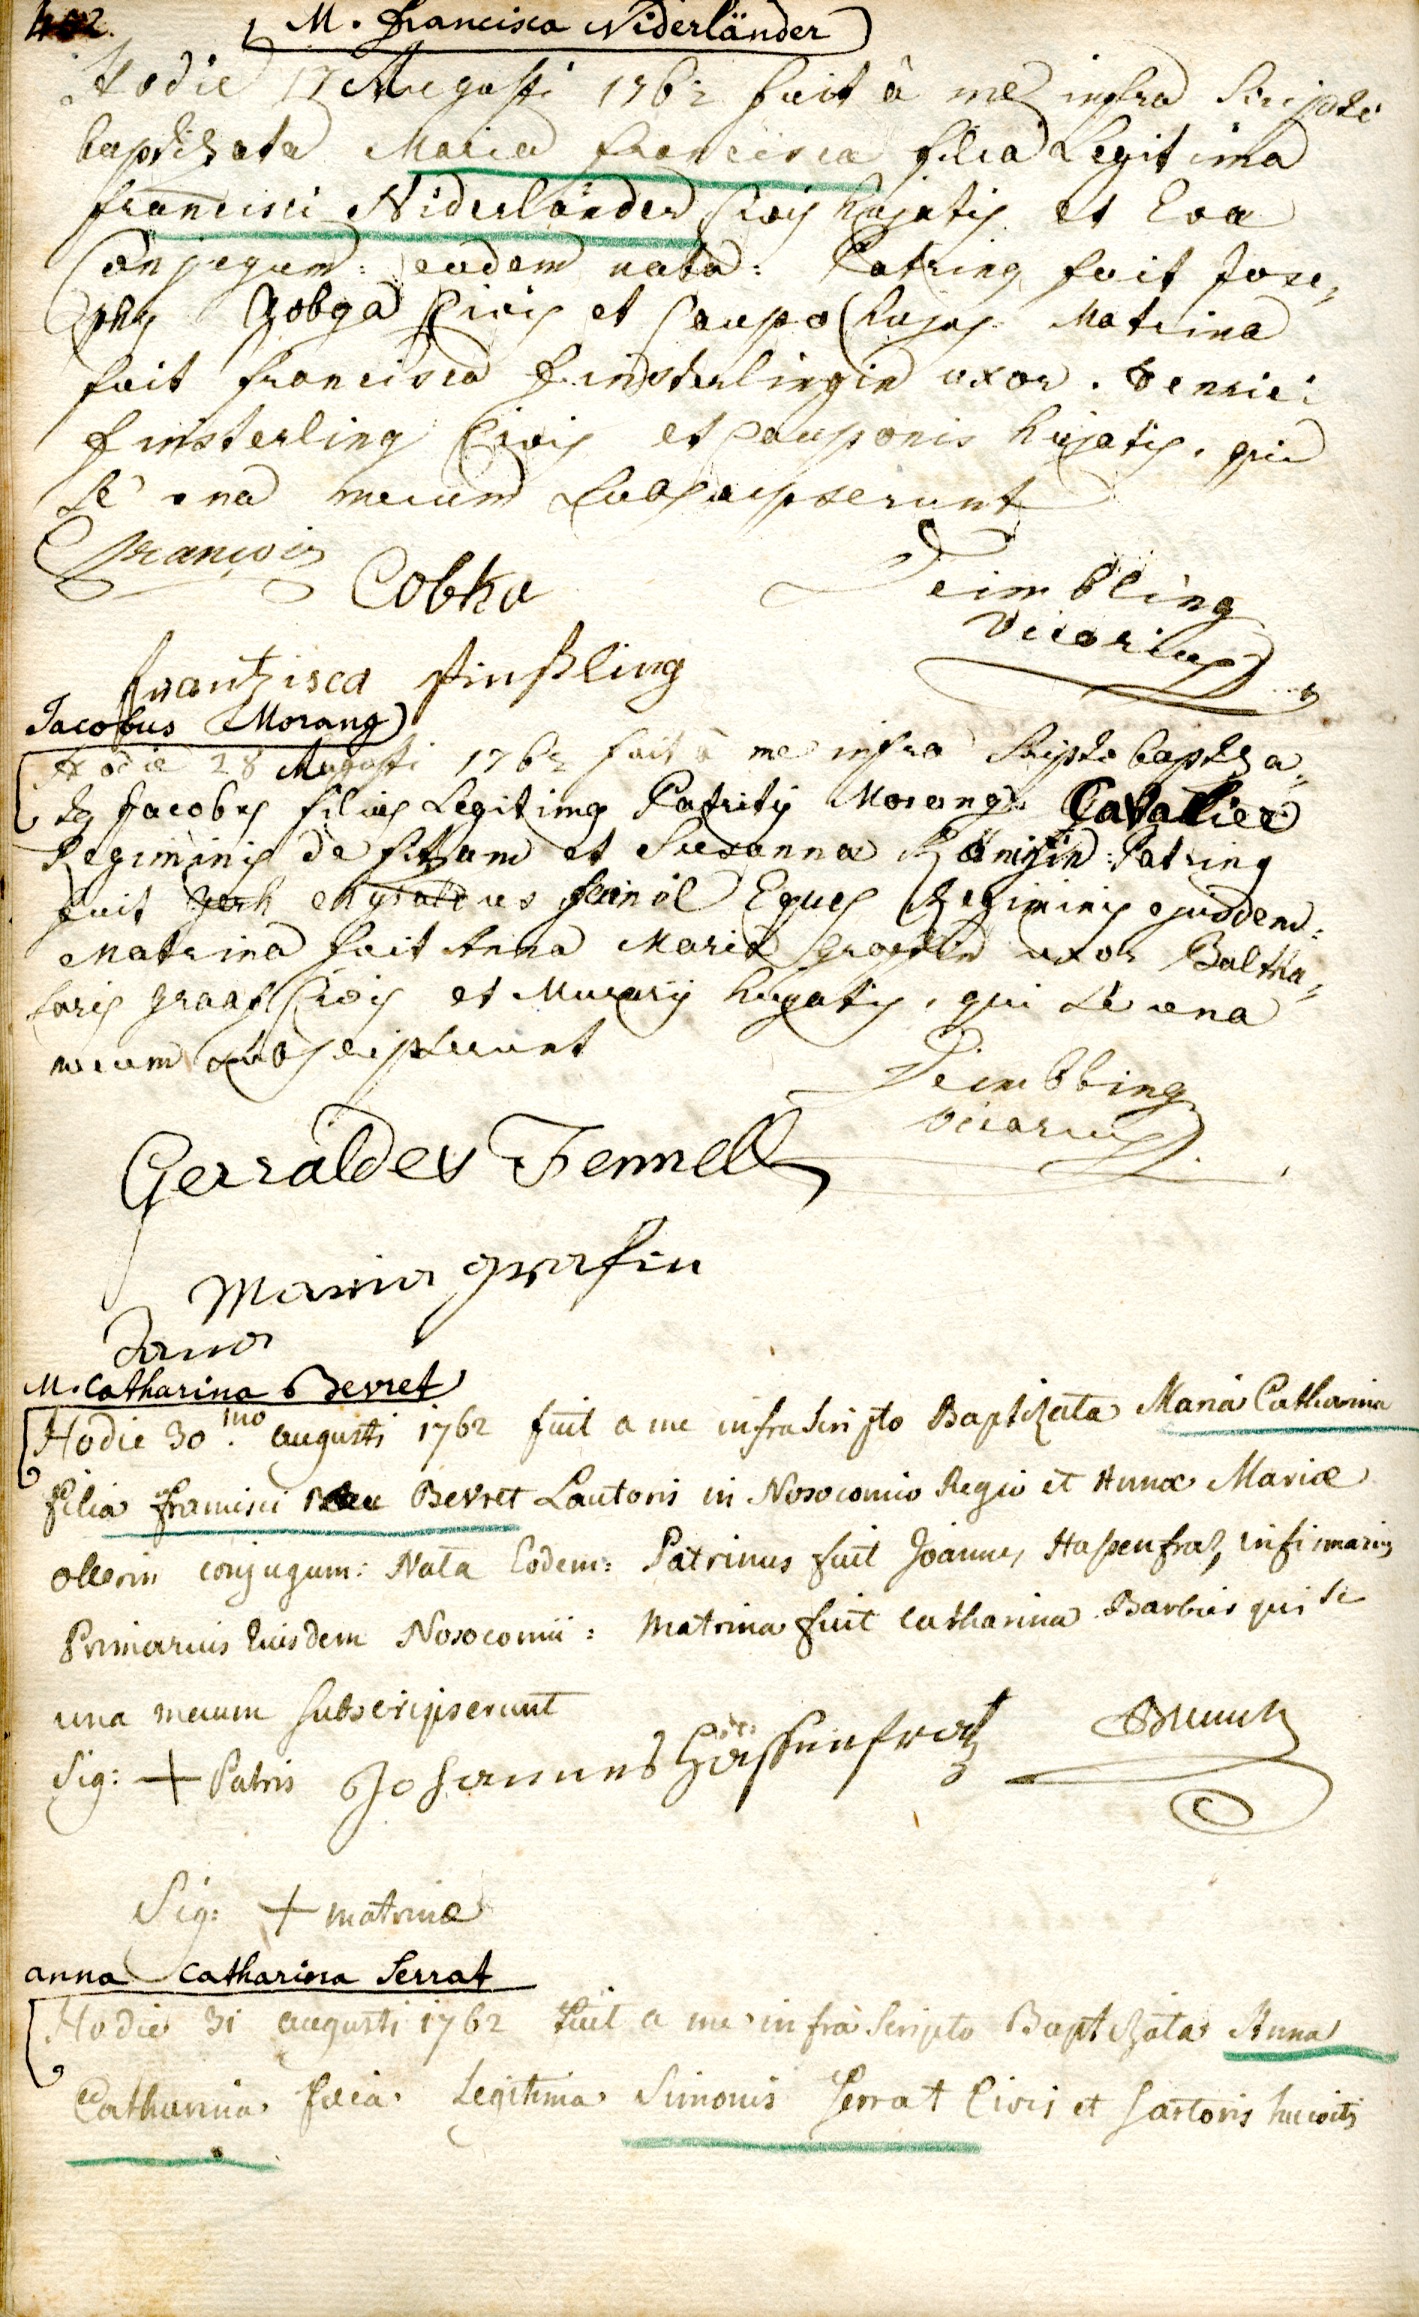 402.
M. Francisca Niderländer
Hodie 17 Augusti 1762 fuit â me infra Scripto
baptizata Maria Francisca filia Legitima
Francisci Niderländer Civis hujatis et Eva
Conjugum: eadem nata: Patrinus fuit Jose„
phus Zobga Civis et Caupo hujas Matrina
fuit Francisca Finsterlingin uxor Henrici
Finsterling Civis et Cauponis hujatis, qui
se una mecum subscripserunt
François
Cobka
Deimbling
Vicarius
frantzisca finßling
Jacobus Morang
Hodie 28 Augusti 1762 fuit â me infra Scripto baptiza„
tus Jacobus filius Legitimus Patritii Morang Cavallier
Regiminis de fitzam et Susanna Patrinus
fuit Gyraldus feinel Eques Regiminis ejusdem:
Matrina fuit Anna Maria grafin uxor Baltha„
saris graaf Civis et Murarii hujatis, qui se una
mecum subscripserunt
Deimbling
Vicarius
Gerraldes Fennell
Maria grafin
Anna
M. Catharina Bevret
Hodie 30mo. augusti 1762 fuit a me infra Scripto Baptizata Maria Catharina
filia Francisci Bevret Lautoris in Nosocomio Regio et Annæ Mariæ
ollerin conjugum: Nata Eodem: Patrinus fuit Joannes Hasenfratz, infirmarius
Primarius Eiusdem Nosocomii: Matrina fuit Catharina Barbies qui se
una mecum subscripserunt
Sig: + Patris Johannes Hassenfratz
Sig: + matrinæ
anna Catharina Serrat
Hodie 31 augusti 1762 fuit a me infra Scripto Baptizata Anna
Catharina filia Legitima Simonis Serrat Civis et Sartoris